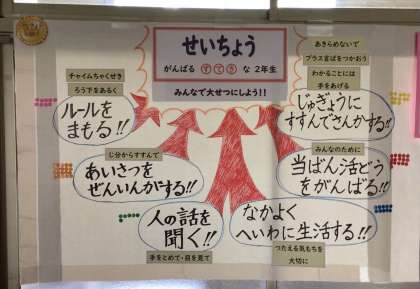 せいちょう
がんばる すてき な 2年生
みんなで大せつにしよう!!
チャイムちゃくせき
ろう下をあるく
ルールを
まもる!!
じ分からすすんで
あいさつを
ぜんいんがする!!
人の話を
聞く!!
手をとめて・目を見て
あきらめないで
プラス言ばをつかおう
わかることには
手をあげる
じゅぎょうに
すすんでさんかする!!
みんなのために
当ばん活どう
をがんばる!!
なかよく
へいわに生活する!!
つたえる気もちを
大切に